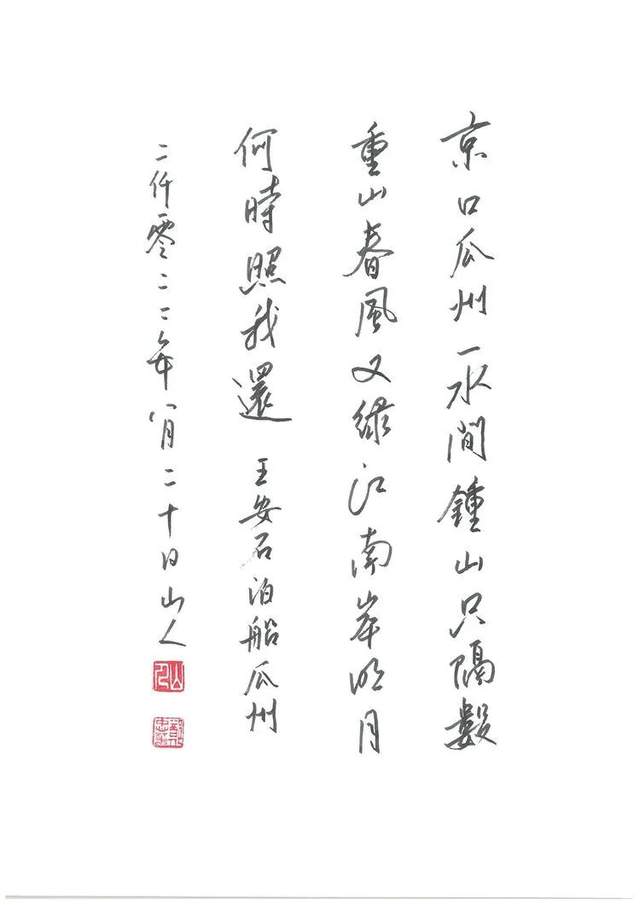 京口瓜州一水间鍾山只隔數
重山春風又绿江南岸明月
何時照我還 王安石泊船瓜州
二仟零二二年八月二十日山人
山人